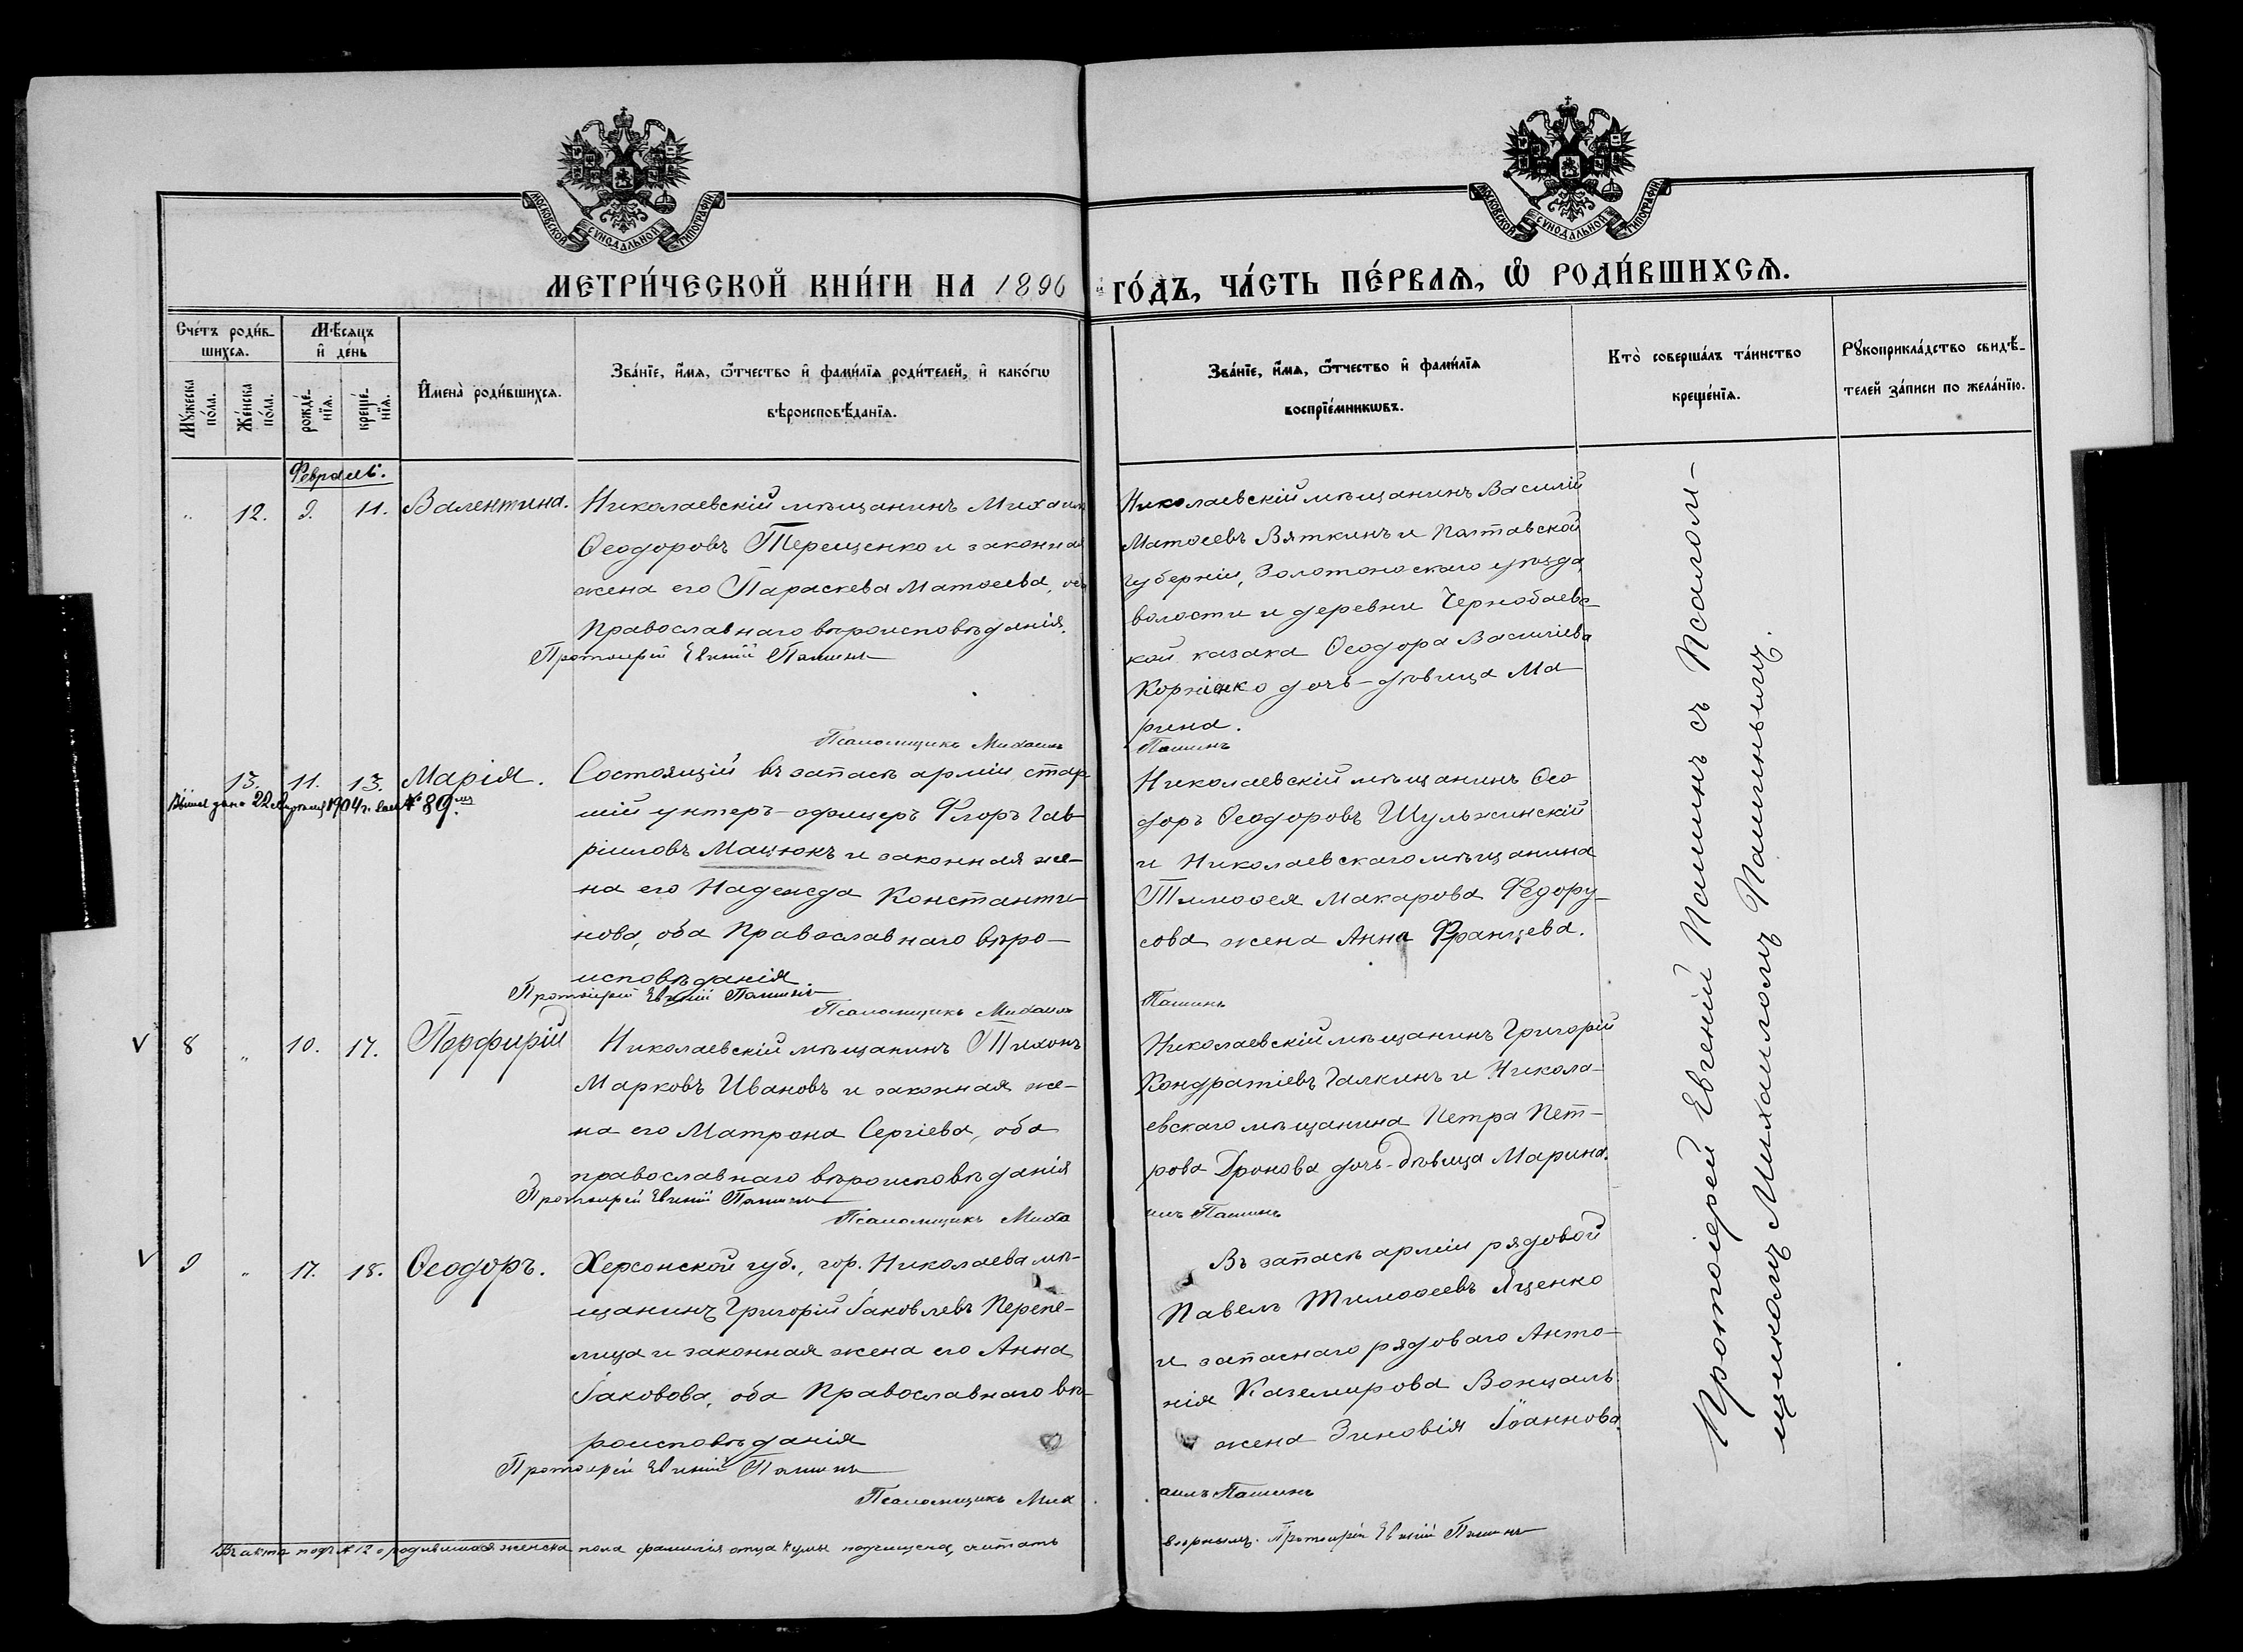 МОСКОВСКОЙ СѴНОДАЛЬНОЙ ТИПОГРАФІИ
МОСКОВСКОЙ СѴНОДАЛЬНОЙ ТИПОГРАФІИ
МЕТРИ́ЧЕСКОЙ КНИ́ГИ НА 1896 ГО́ДЪ, ЧА́СТЬ ПЕ́РВАѦ, Ѽ РОДИ́ВШИХСѦ.
Сче́тъ роди́в-
шихсѧ.
Мꙋ́жеска по́ла.
Же́нска по́ла.
Мѣ́сѧцъ
и҆ де́нь
рожде́-
нїѧ.
креще́-
нїѧ.
И҆мена̀ роди́вшихсѧ.
Зва́нїе, и҆́мѧ, ѻ҆́тчество и҆ фамі́лїѧ роди́телей, и҆ како́гѡ
вѣроисповѣ́данїѧ.
Зва́нїе, и҆́мѧ, ѻ҆́тчество и҆ фамі́лїѧ
воспрїе́мникѡвъ.
Кто̀ соверша́лъ та́инство
креще́нїѧ.
Рꙋкоприкла́дство свидѣ́-
телей за́писи по жела́нїю.
Февраль.
" 12. 9. 11. Валентина.
Николаевскій мѣщанинъ Михаилъ
Ѳеодоровъ Терещенко и законная
жена его Параскева Матѳеева, оба
Православнаго вѣроисповѣданія.
Протоіерей Евгеній Пашинъ
Псаломщикъ Михаилъ Пашинъ
Николаевскій мѣщанинъ Василій
Матѳеевъ Вяткинъ и Полтавской
губерніи, Золотоноскаго уѣзда,
волости и деревни Чернобаевс-
кой казака Ѳеодора Василіева
Корніенко дочь-дѣвица Ма-
рина.
13. 11. 13. Марія.
22 1904 г. № 89
Состоящій въ запасѣ арміи стар-
шій унтеръ-офицеръ Флоръ Гав-
ріиловъ Мацюкъ и законная же-
на его Надежда Константи-
нова, оба Православнаго вѣро-
исповѣданія
Протоіерей Евгеній Пашинъ
Псаломщикъ Михаилъ Пашинъ
Николаевскій мѣщанинъ Ѳео-
доръ Ѳеодоровъ Шульжинскій
и Николаевскаго мѣщанина
Тимоѳея Макарова Федору-
сова жена Анна Францева.
8 " 10. 17. Порфирій
Николаевскій мѣщанинъ Тихонъ
Марковъ Ивановъ и законная же-
на его Матрона Сергіева, оба
православнаго вѣроисповѣданія
Протоіерей Евгеній Пашинъ
Псаломщикъ Михаилъ Пашинъ
Николаевскій мѣщанинъ Григорій
Кондратіевъ Галкинъ и Никола-
евскаго мѣщанина Петра Пет-
рова Дронова дочь-дѣвица Марина.
9 " 17. 18. Ѳеодоръ.
Херсонской губ., гор. Николаева мѣ-
щанинъ Григорій Іаковлевъ Перепе-
лица и законная жена его Анна
Іаковова, оба Православнаго вѣ-
роисповѣданія
Протоіерей Евгеній Пашинъ
Псаломщикъ Михаилъ Пашинъ
Въ запасѣ арміи рядовой
Павелъ Тимоѳеевъ Яценко
и запаснаго рядоваго Анто-
нія Каземирова Вонцаль
жена Зиновія Іоаннова.
Протоіерей Евгеній Пашинъ съ Псалом-
щикомъ Михаиломъ Пашинымъ.
Въ актѣ подъ № 12 о родившихся женска пола фамилія отца кумы подчищена, считать вѣрнымъ. Протоіерей Евгеній Пашинъ